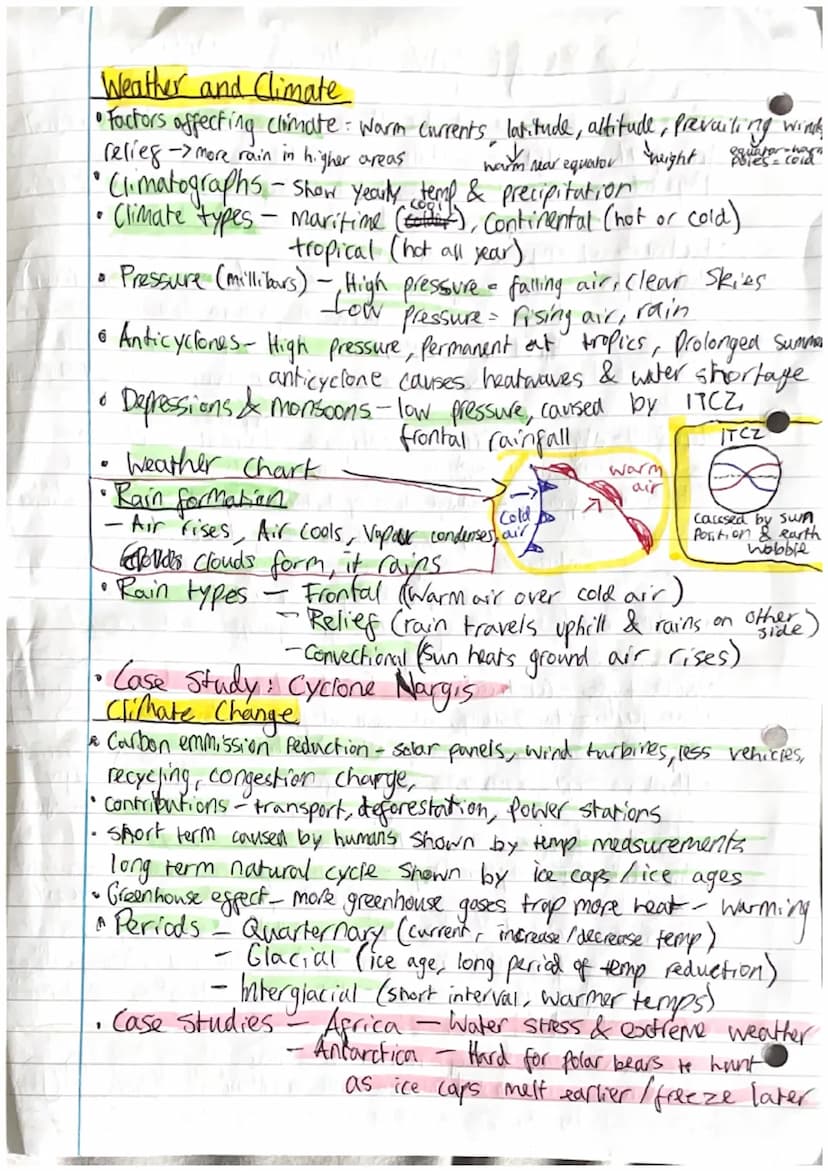 Weather and Climate
• Factors affecting climate: warm currents, latitude, altitude, prevailing winds
relief → more rain in higher areas
warm near equator
height
equator = warm
poles = cold
• Climatographs - show yearly temp & precipitation
• Climate types - Maritime (cool), Continental (hot or cold)
tropical (hot all year)
• Pressure (millibars) - High pressure = falling air, clear skies
- Low pressure = rising air, rain
• Anticyclones - High pressure, permanent at tropics, Prolonged summer
anticyclone causes heatwaves & water shortage
• Depressions & monsoons - low pressure, caused by ITCZ,
frontal rainfall
• Weather chart
cold
air
warm
air
ITCZ
caused by sun
position & earth
wobble
• Rain formation
- Air rises, Air cools, Vapour condenses,
clouds form, it rains
• Rain types - Frontal (warm air over cold air)
- Relief (rain travels uphill & rains on other side)
- Convectional (sun heats ground air rises)
• Case Study: Cyclone Nargis
Climate Change
• Carbon emmission reduction - solar panels, wind turbines, less vehicles,
recycling, congestion charge,
• contributions - transport, deforestation, power stations
• short term caused by humans shown by temp measurements
long term natural cycle shown by ice caps / ice ages
• Greenhouse effect - more greenhouse gases trap more heat - warming
• Periods - Quarternary (current, increase/decrease temp)
- Glacial (ice age, long period of temp reduction)
- Interglacial (short interval, warmer temps)
• Case studies - Africa - Water stress & extreme weather
- Antarctica - Hard for polar bears to hunt
as ice caps melt earlier/freeze later